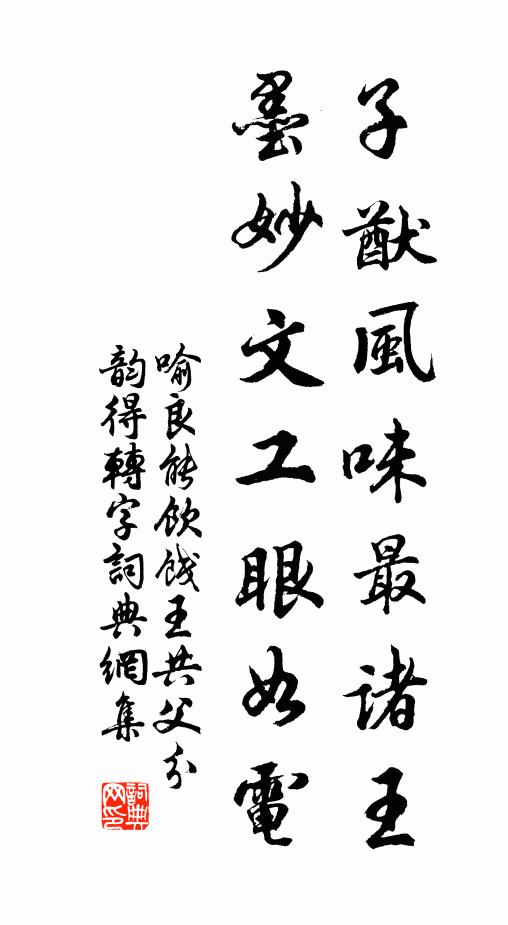 子猷風味最諸王
墨妙文工眼如電
喻良能飲餞王共父分
韵得轉字詞典網集
詞典
网印